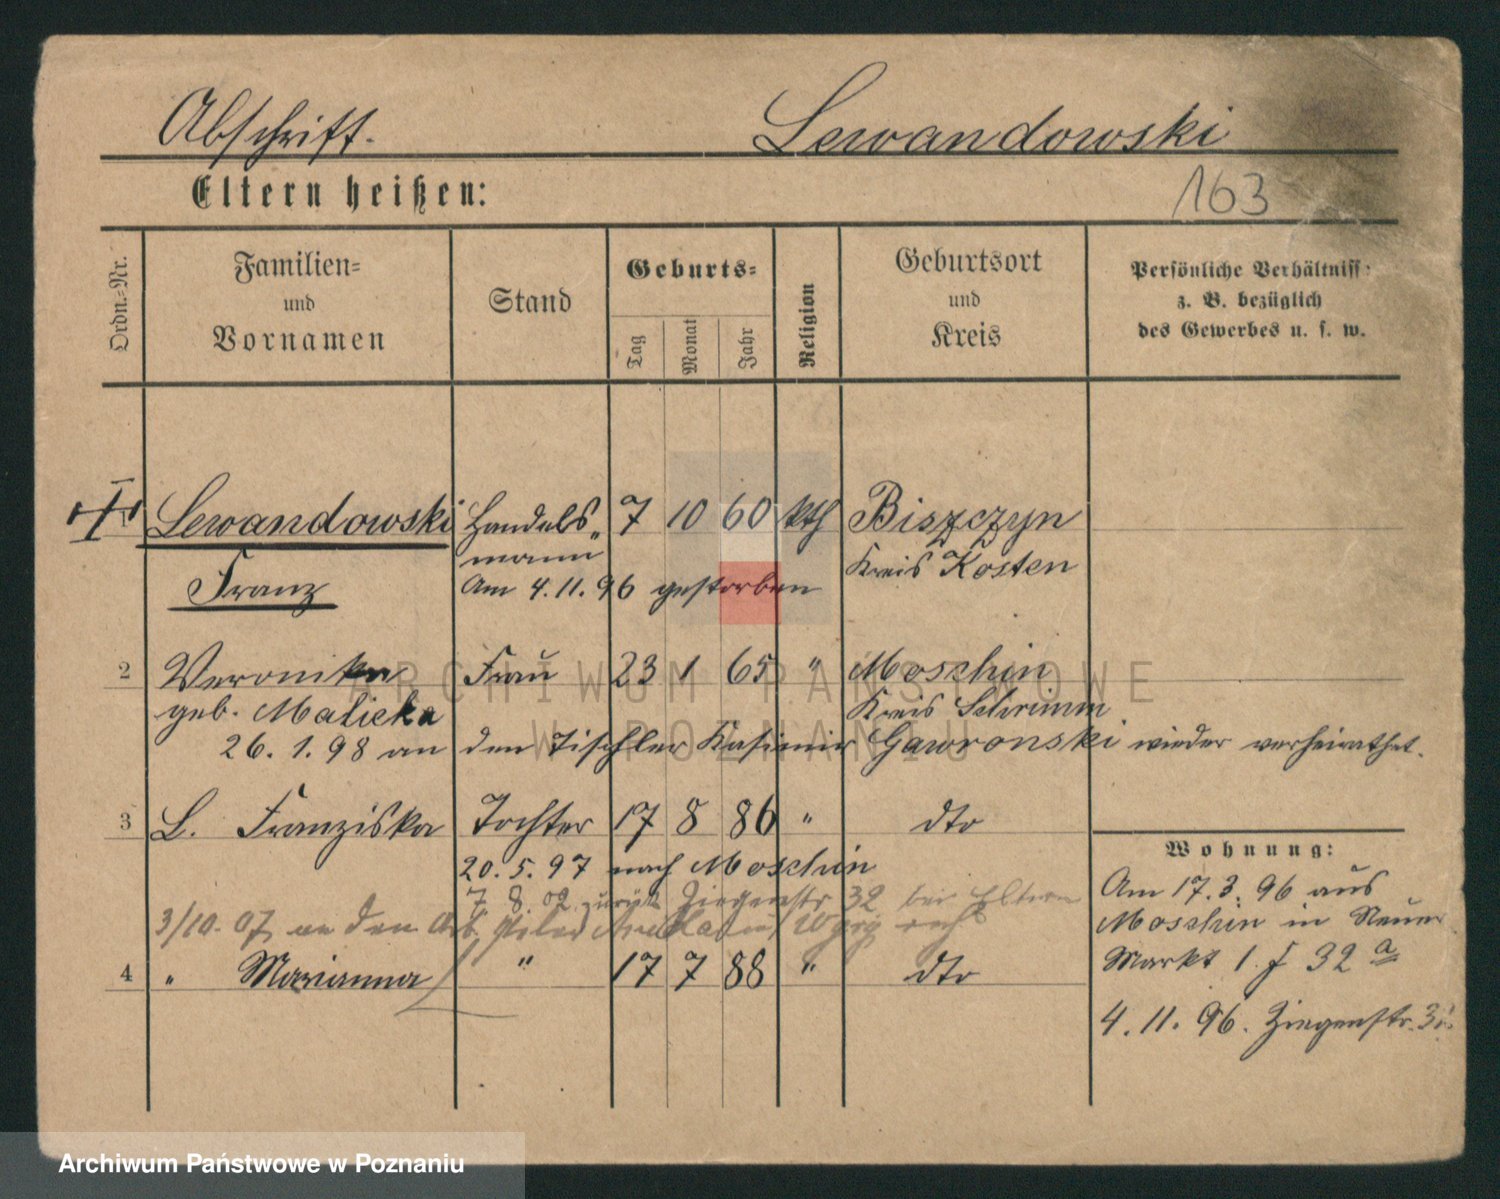 Abschrift. Lewandowski
Eltern heißen:
163
Ordn.=Nr.
Familien=
und
Vornamen
Stand
Geburts=
Tag Monat Jahr
Religion
Geburtsort
und
Kreis
Persönliche Verhältniss:
z. B. bezüglich
des Gewerbes u. s. w.
1 Lewandowski Handels 7 10 60 kth Biszczyn
mann Kreis Kosten
Franz Am 4.11.96 gestorben
2 Veronika Frau 23 1 65 " Moschin
geb. Malicka Kreis Schrimm
26.1.98 an den Tischler Kasimir Gawronski wieder verheirathet.
3 L. Franziska Tochter 17 8 86 " dto
20.5.97 nach Moschin
7 8. 02 zurück Ziegenstr 32 bei Eltern
3/10. 07 an den Arb.
4 " Marianna " 17 7 88 " dto
Wohnung:
Am 17.3.96 aus
Moschin in Neuer
Markt 1. J 32 a
4.11.96. Ziegenstr.
ARCHIWUM PAŃSTWOWE
W POZNANIU
Archiwum Państwowe w Poznaniu